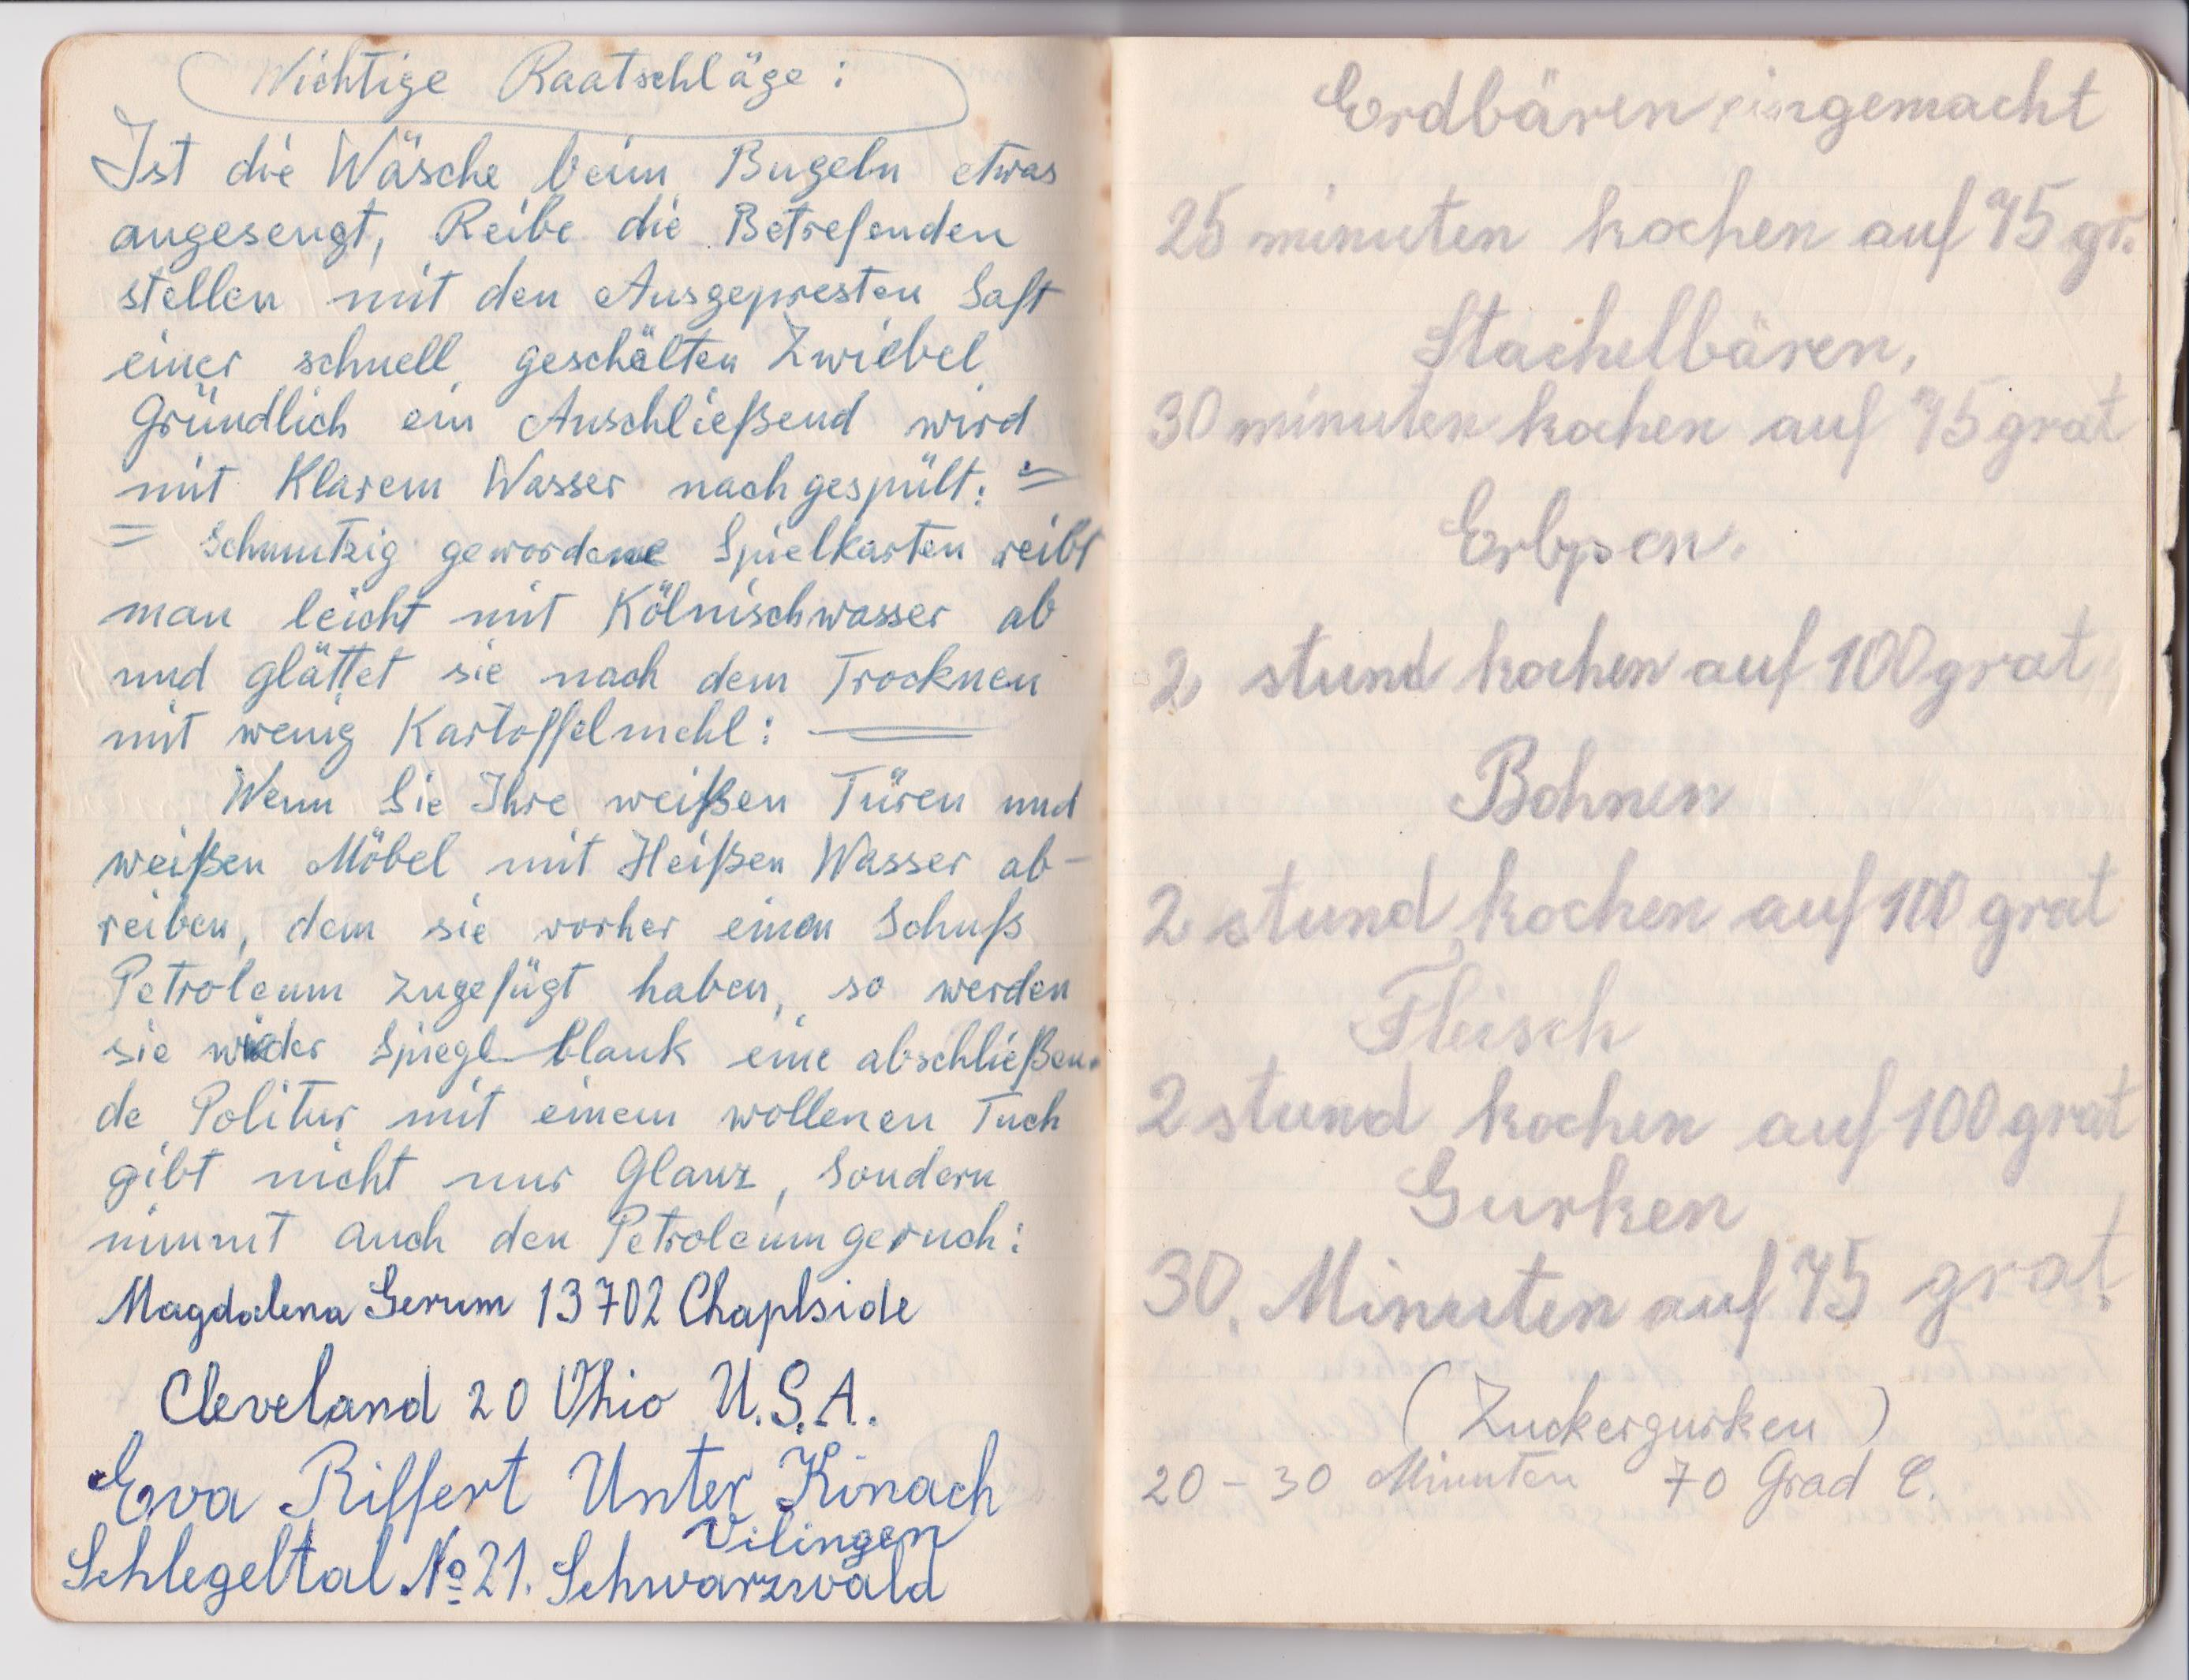 Wichtige Raatschläge:
Ist die Wäsche beim Bugeln etwas
angesengt, Reibe die Betrefenden
stellen mit den Ausgepresten Saft
einer schnell geschälten Zwiebel
Gründlich ein Anschließend wird
mit Klarem Wasser nachgespült: =
= Schmutzig gewordene Spielkarten reibt
man leicht mit Kölnischwasser ab
und glättet sie nach dem Trocknen
mit wenig Kartoffelmehl:
Wenn Sie Ihre weißen Türen und
weißen Möbel mit Heißen Wasser ab-
reiben, dem sie vorher einen Schuß
Petroleum zugefügt haben, so werden
sie wieder Spiegl blank eine abschließen-
de Politur mit einem wollenen Tuch
gibt nicht nur Glanz, Sondern
nimmt auch den Petroleumgeruch:
Magdalena Gerum 13702 Chaplside
Cleveland 20 Ohio U.S.A.
Eva Riffert Unter Kirnach
Vilingen
Schlegeltal № 21. Schwarzwald
Erdbären eingemacht
25 minuten kochen auf 75 gr.
Stachelbären,
30 minuten kochen auf 75 grat
Erbpsen.
2 stund kochen auf 100 grat
Bohnen
2 stund kochen auf 100 grat
Fleisch
2 stund kochen auf 100 grat
Gurken
30. Minuten auf 75 grat.
(Zuckergurken)
20 - 30 Minuten 70 Grad C.